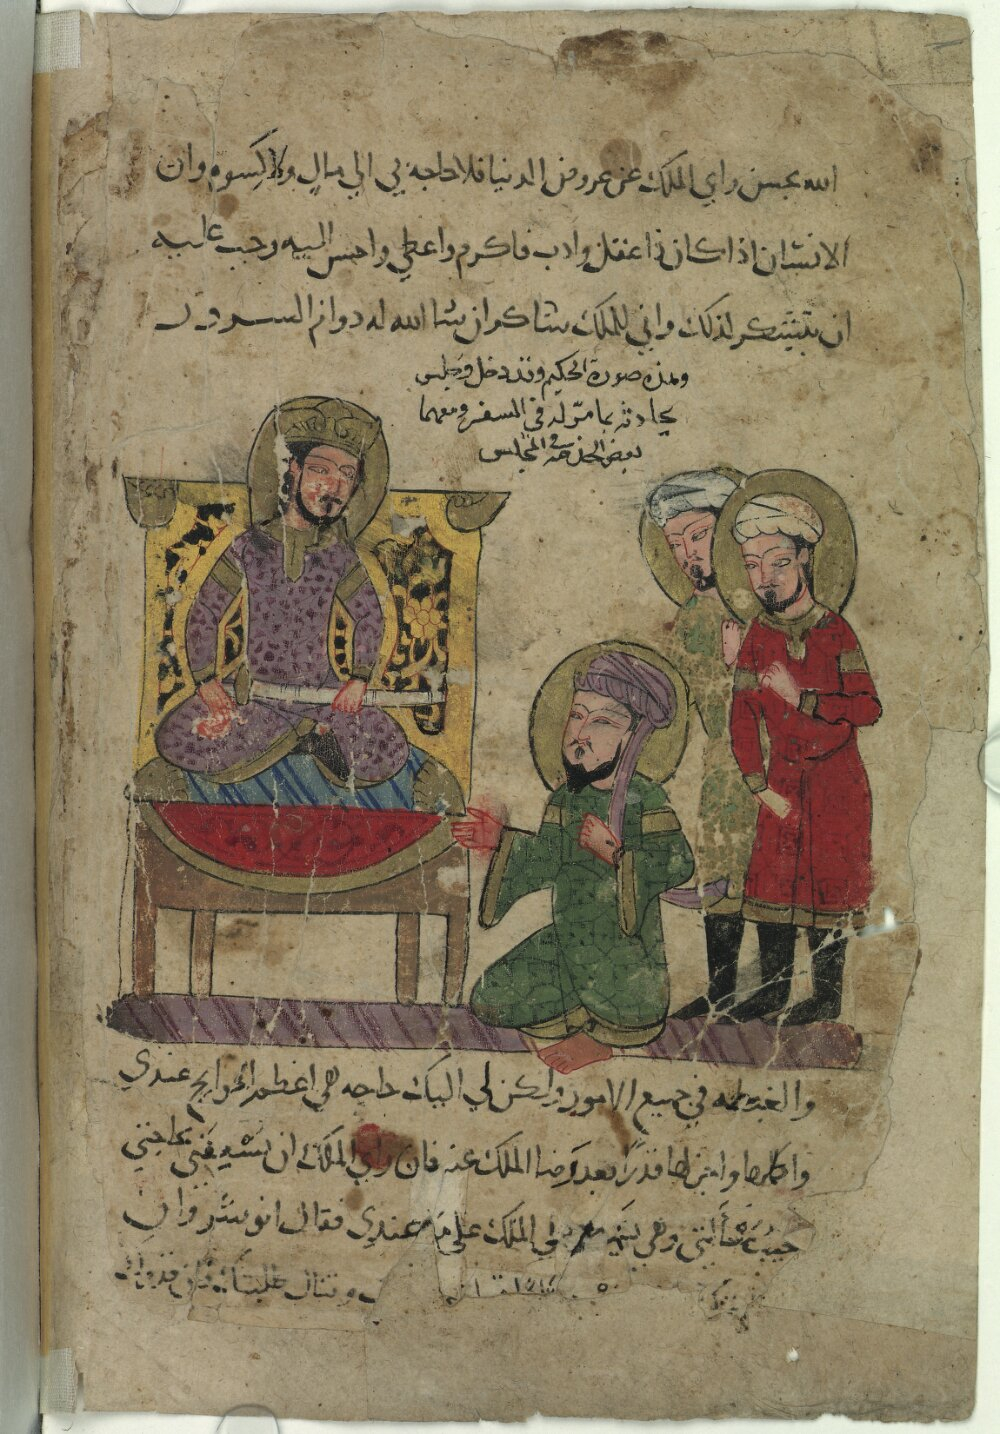 الله بحسن راي الملك عن عروض الدنيا فلا حاجة بي الي مال ولا كسوه وان
الانسان اذا كان ذا عقل وادب فاكرم واعطي واحسن اليه وجب عليه
ان يتشكر لذلك واني للملك شاكر ان شا الله له دوام السرور
وهذه صورة الحكيم وقد دخل وجلس
يحادثه بما مرّ له في السفر ومعهما
بعض الخدم في المجلس
والغبطه في جميع الامور ولكن لي اليك حاجه هي اعظم الحوايج عندي
واكثرها وابينها قدرًا بعد رضا الملك عنه فان راي الملك ان يشفعني بحاجتي
وهي الملك علي عندي فقال انوشروان